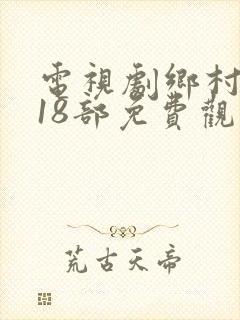 電視劇鄉村
18部免費觀
荒古天帝